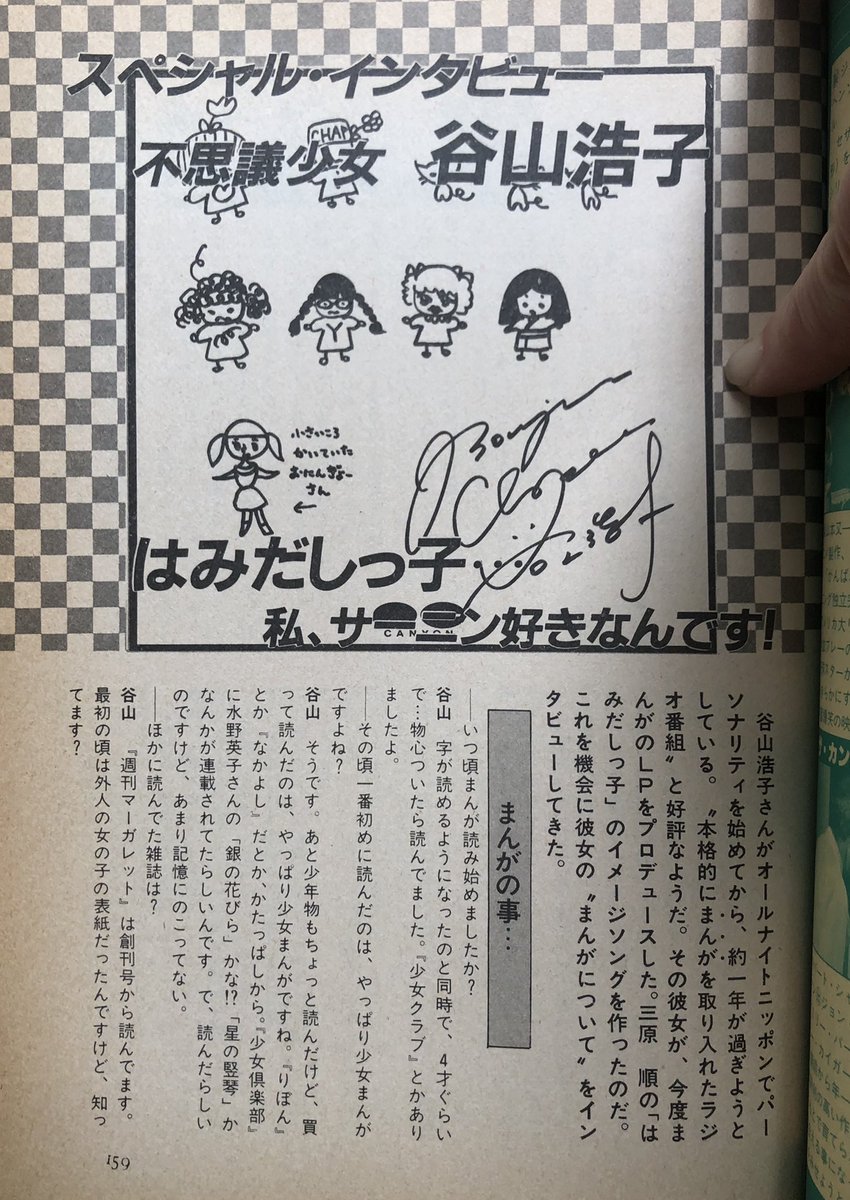 スペシャル・インタビュー
不思議少女 谷山浩子
CHAP
小さいころ
かいていた
おにんぎょー
さん
はみだしっ子
私、サニン好きなんです!
CANYON
谷山浩子さんがオールナイトニッポンでパー
ソナリティを始めてから、約一年が過ぎようと
している。〝本格的にまんがを取り入れたラジ
オ番組〟と好評なようだ。その彼女が、今度ま
んがのLPをプロデュースした。三原 順の「は
みだしっ子」のイメージソングを作ったのだ。
これを機会に彼女の〝まんがについて〟をイン
タビューしてきた。
まんがの事…
——いつ頃まんが読み始めましたか?
谷山 字が読めるようになったのと同時で、4才ぐらい
で…物心ついたら読んでました。『少女クラブ』とかあり
ましたよ。
——その頃一番初めに読んだのは、やっぱり少女まんが
ですよね?
谷山 そうです。あと少年物もちょっと読んだけど、買
って読んだのは、やっぱり少女まんがですね。『りぼん』
とか『なかよし』だとか、かたっぱしから。『少女倶楽部』
に水野英子さんの「銀の花びら」かな!?「星の竪琴」か
なんかが連載されてたらしいんです。で、読んだらしい
のですけど、あまり記憶にのこってない。
——ほかに読んでた雑誌は?
谷山 『週刊マーガレット』は創刊号から読んでます。
最初の頃は外人の女の子の表紙だったんですけど、知っ
てます?
159